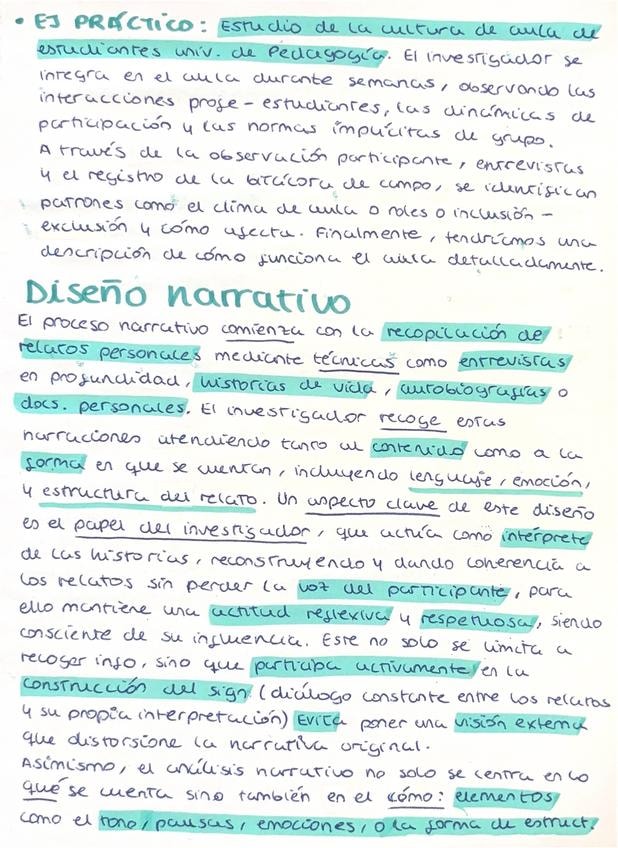 • EJ PRÁCTICO: Estudio de la cultura de aula de
estudiantes univ. de Pedagogía. El investigador se
integra en el aula durante semanas, observando las
interacciones profe-estudiantes, las dinámicas de
participación y las normas implícitas de grupo.
A través de la observación participante, entrevistas
y el registro de la bitácora de campo, se identifican
patrones como el clima de aula o roles o inclusión-
exclusión y cómo afecta. Finalmente, tendríamos una
descripción de cómo funciona el aula detalladamente.
Diseño narrativo
El proceso narrativo comienza con la recopilación de
relatos personales mediante técnicas como entrevistas
en profundidad, historias de vida, autobiografías o
docs. personales. El investigador recoge estas
narraciones atendiendo tanto al contenido como a la
forma en que se cuentan, incluyendo lenguaje, emoción,
y estructura del relato. Un aspecto clave de este diseño
es el papel del investigador, que actúa como intérprete
de las historias, reconstruyendo y dando coherencia a
los relatos sin perder la voz del participante, para
ello mantiene una actitud reflexiva y respetuosa, siendo
consciente de su influencia. Este no solo se limita a
recoger info, sino que participa activamente en la
construcción del sign. (diálogo constante entre los relatos
y su propia interpretación) Evita poner una visión externa
que distorsione la narrativa original.
Asimismo, el análisis narrativo no solo se centra en lo
qué se cuenta sino también en el cómo: elementos
como el tono, pausas, emociones, o la forma de estruct.